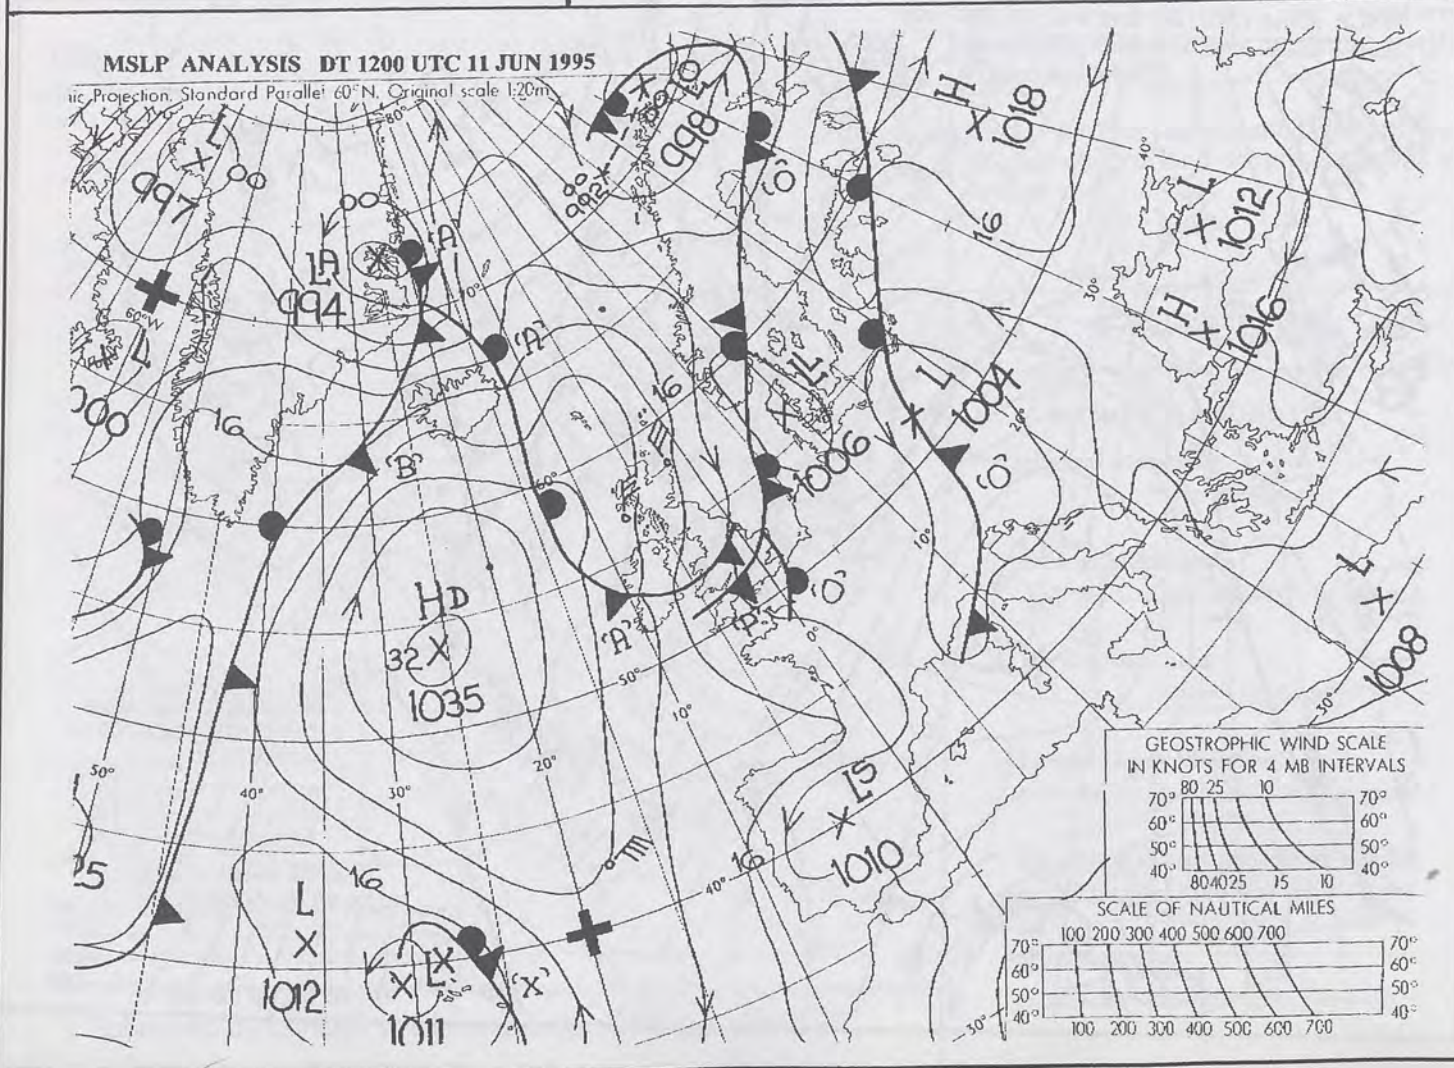 MSLP ANALYSIS DT 1200 UTC 11 JUN 1995
ic Projection. Standard Parallel 60°N. Original scale 1:20m
80°
L
997
00
00
LA
994
'A'
60°W
L
000
70°
'A'
16
'B'
L
998
00
992
'O'
H
1018
16
40°
L
1012
30°
H
1016
16
L
1006
L
1004
20°
'O'
10°
60°
HD
32
1035
'A'
'P'
'O'
0°
50°
10°
L
1008
30°
50°
40°
30°
20°
25
16
L
1012
LX
1011
'X'
16
40°
LS
1010
30°
GEOSTROPHIC WIND SCALE
IN KNOTS FOR 4 MB INTERVALS
80 25 10
70° 70°
60° 60°
50° 50°
40° 40°
80 40 25 15 10
SCALE OF NAUTICAL MILES
100 200 300 400 500 600 700
70° 70°
60° 60°
50° 50°
40° 40°
100 200 300 400 500 600 700